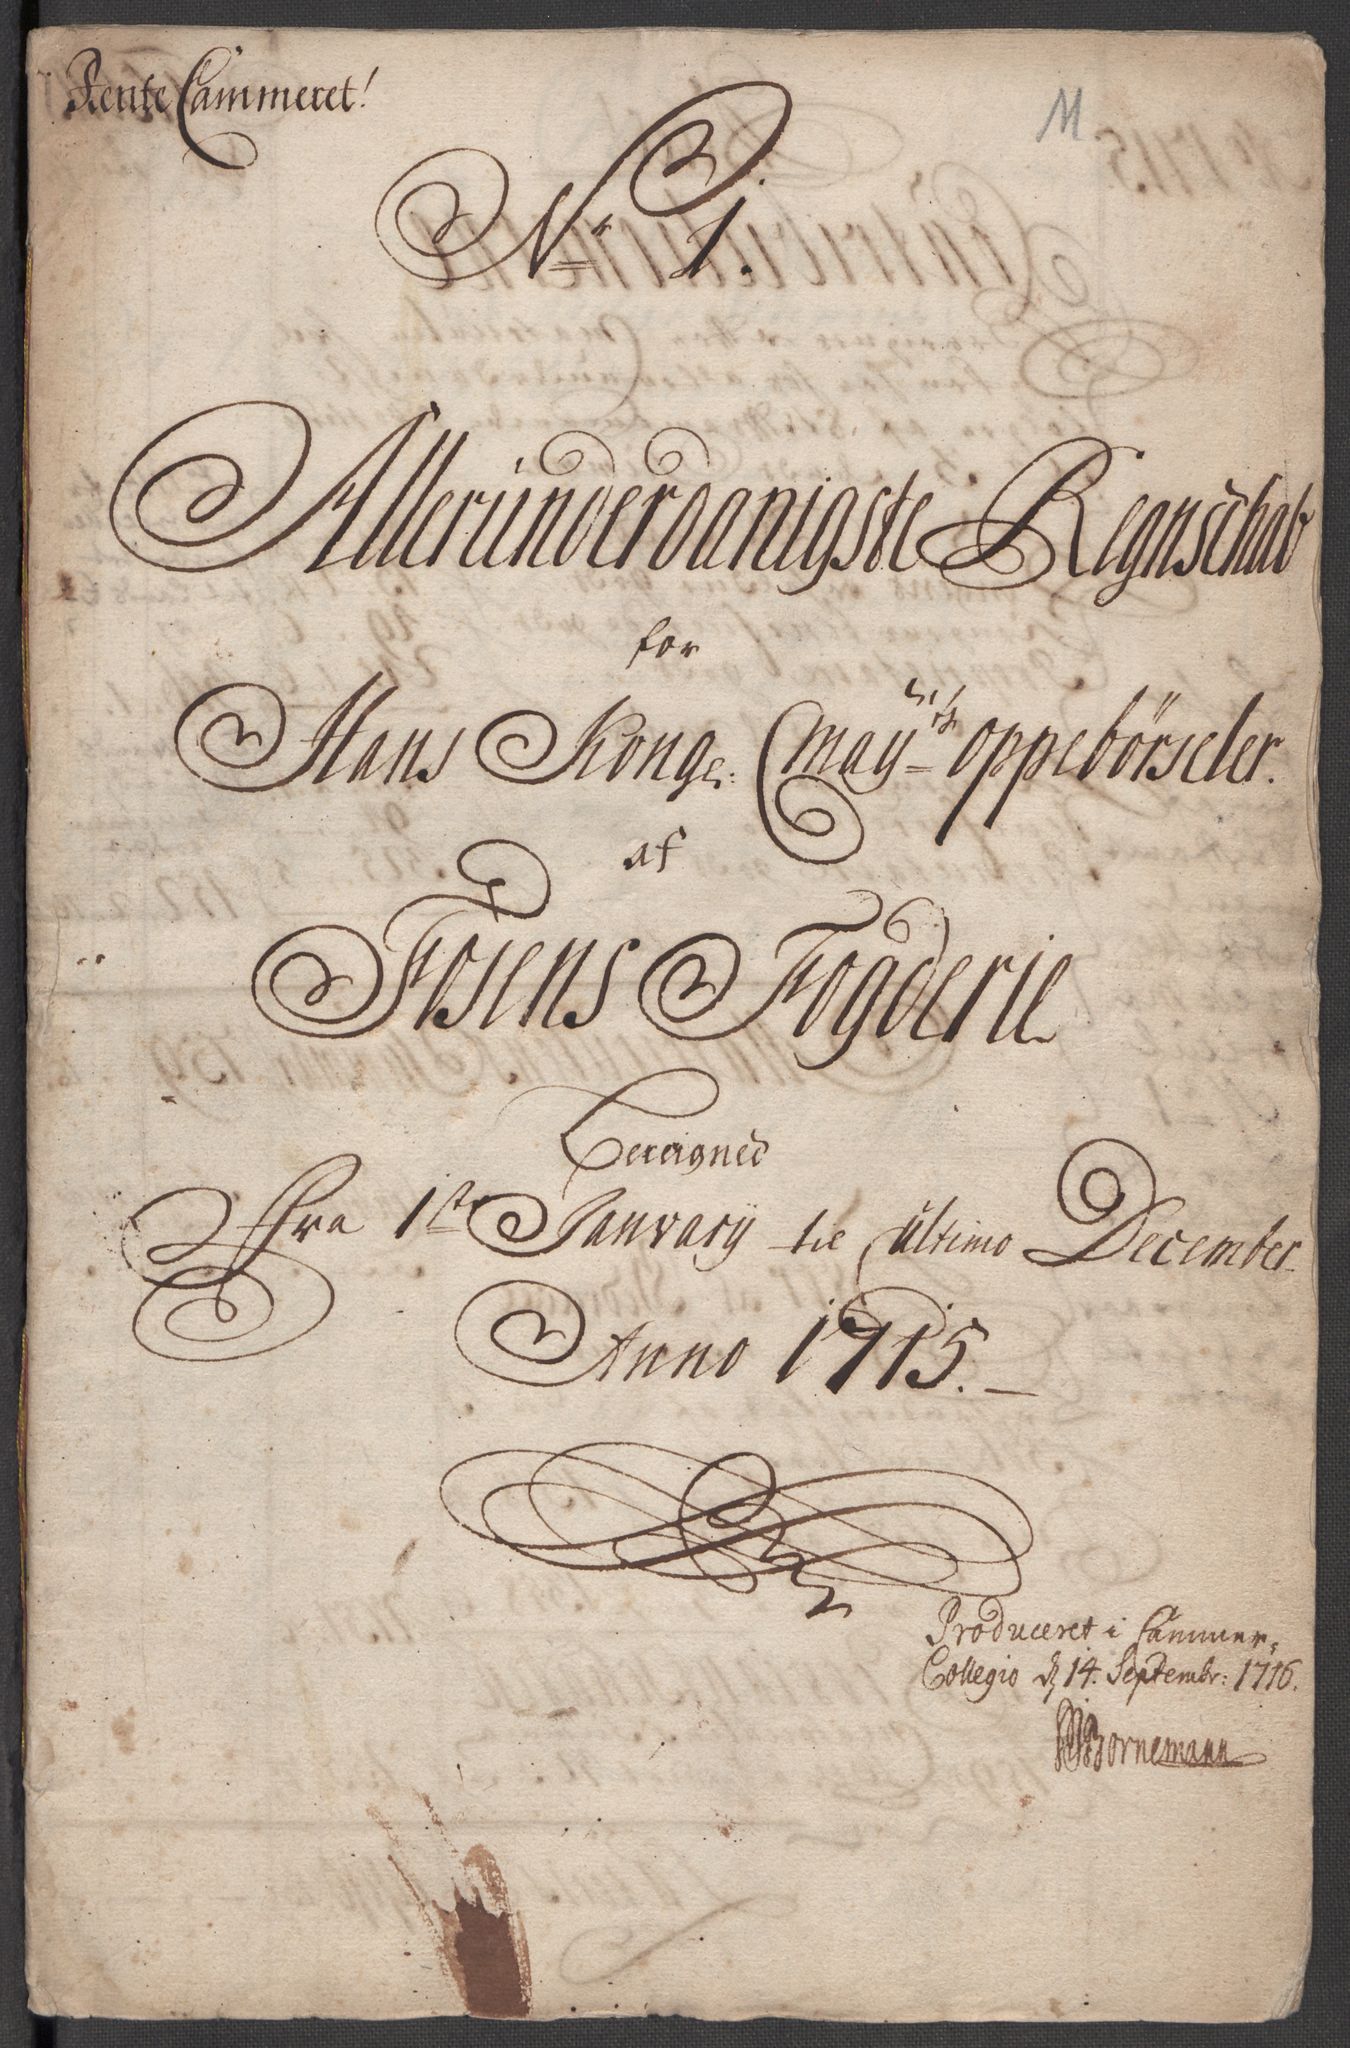 Rente Cammeret!
M
No 1.
Alleründerdanigste Regnschab
for
Hans Kongel: Mayts oppebörseler.
af
Fosens Fogderie
Bereigned
Fra 1ste Janvarij til ultimo December
Anno 1715.
Produceret i Cammer-
Collegio d 14. Septembr: 1716.
Bornemann